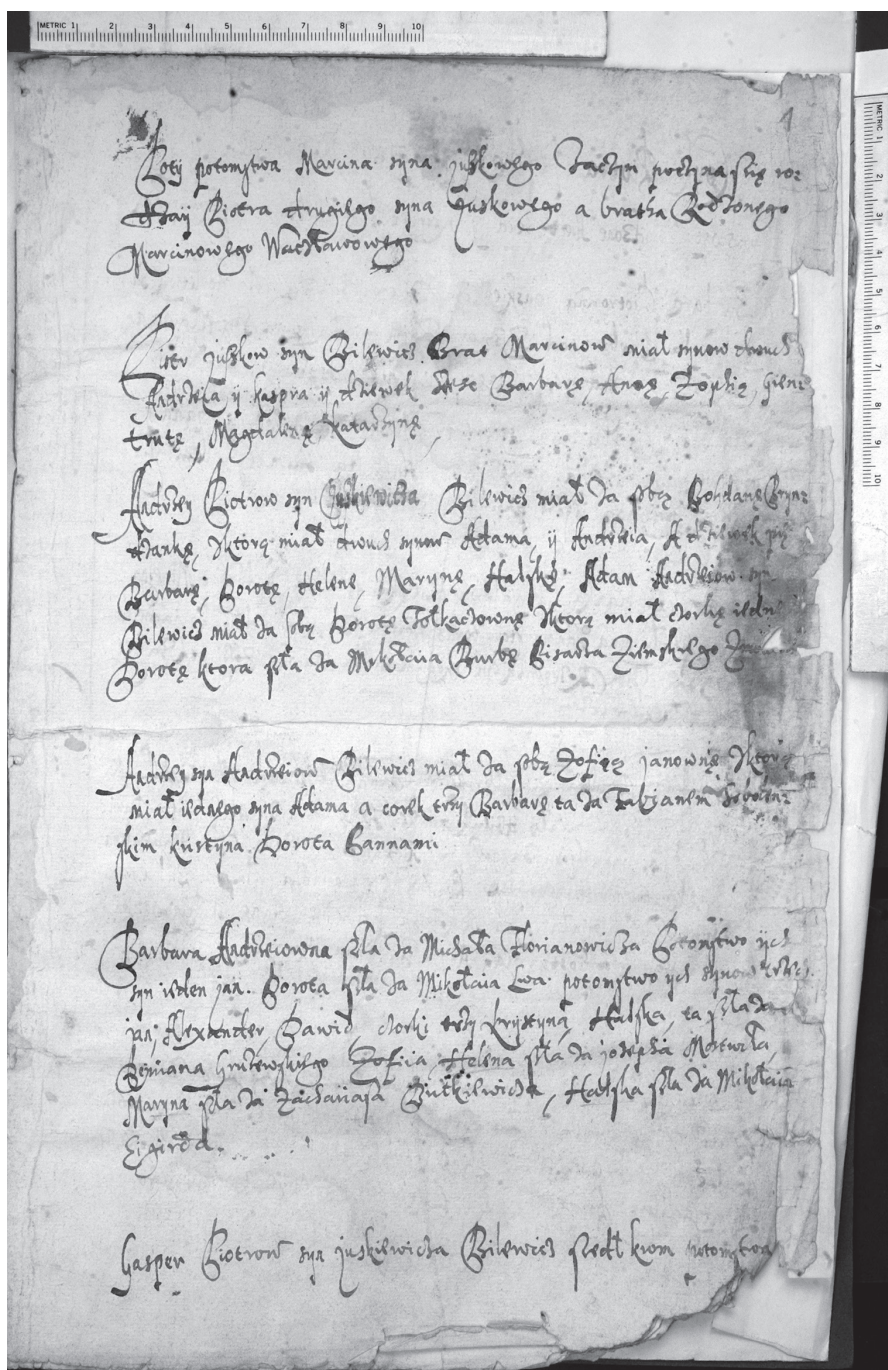 METRIC 1 2 3 4 5 6 7 8 9 10
METRIC 1 2 3 4 5 6 7 8 9 10
1
Poty potomstwa Marcina syna juszkowego Zaczim poczyna się ro=
dzay Piotra drugiego syna Juskowego a bratha Rodzonego
Marcinowego Wacławowego
Piotr juszkow syn Bilewicz Brat Marcinow miał synow dwuch
Andrzeia y kaspra y dziewek Barbarę, Annę, Zophią, gien=
trutę, Magdalenę, kataržynę,
Andrzey Piotrow syn Juskiewicza Bilewicz miał za sobą Bohdanę
dzankę, sktorą miał dwuch synow Adama, y Andrzeia, A dziewek
Barbarę, Dorotę, Helenę, Marynę, Halskę, Adam Andrzeiow syn
Bilewicz miał za sobą Dorotę Tolkaczownę sktorą miał czorkę iednę
Dorotę ktora szła za Mikołaia Burbę Pisarza Ziemskiego
Andrzey syn Andrzeiow Bilewicz miał za sobą Zofięą janownę sktorą
miał iednego syna Adama a corek trzy Barbarę ta za Fabianem
skim kristyna Dorota Pannami
Barbara Andrzeiowna szla za Michała Florianowicza Potomstwo ych
syn ieden jan. Dorota szła za Mikołaia Lwa potomstwo ych synow trzech
jan, Alexander, Dawid, czorki trzy krystyna, Halska, ta szła za
Beniana Gruzewskiego Zofiia, Helena szła za jozepha
Maryna szła za Zachariasza Butkiewicza, Halska szla za Mikołaia
Eigirda.
Gasper Piotrow syn juskiewicza Bilewicz szedł krom potomstwa